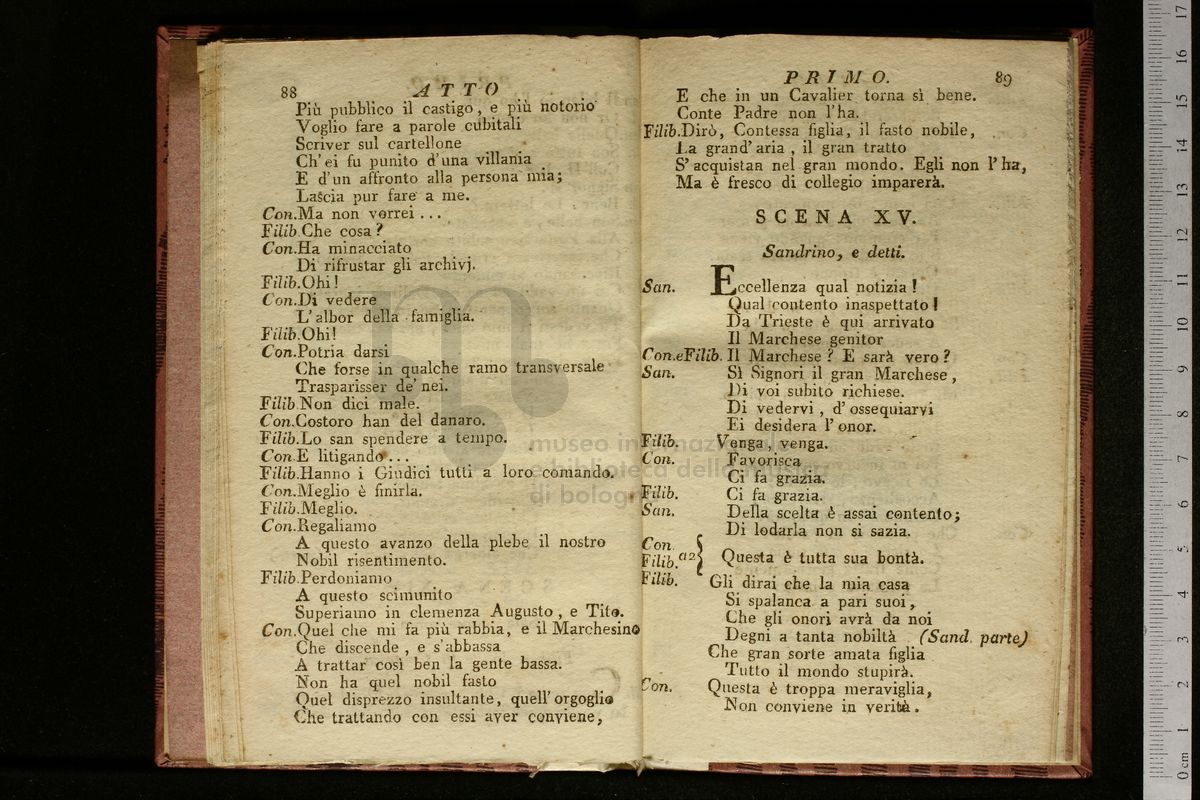 88 ATTO
Più pubblico il castigo, e più notorio
Voglio fare a parole cubitali
Scriver sul cartellone
Ch'ei fu punito d'una villania
E d'un affronto alla persona mia;
Lascia pur fare a me.
Con. Ma non vorrei ...
Filib. Che cosa?
Con. Ha minacciato
Di rifrustar gli archivj.
Filib. Ohi!
Con. Di vedere
L'albor della famiglia.
Filib. Ohi!
Con. Potria darsi
Che forse in qualche ramo transversale
Trasparisser de' nei.
Filib. Non dici male.
Con. Costoro han del danaro.
Filib. Lo san spendere a tempo.
Con. E litigando ...
Filib. Hanno i Giudici tutti a loro comando.
Con. Meglio è finirla.
Filib. Meglio.
Con. Regaliamo
A questo avanzo della plebe il nostro
Nobil risentimento.
Filib. Perdoniamo
A questo scimunito
Superiamo in clemenza Augusto, e Tito.
Con. Quel che mi fa più rabbia, e il Marchesino
Che discende, e s'abbassa
A trattar così ben la gente bassa.
Non ha quel nobil fasto
Quel disprezzo insultante, quell'orgoglio
Che trattando con essi aver conviene,
PRIMO. 89
E che in un Cavalier torna sì bene.
Conte Padre non l'ha.
Filib. Dirò, Contessa figlia, il fasto nobile,
La grand'aria, il gran tratto
S'acquistan nel gran mondo. Egli non l'ha,
Ma è fresco di collegio imparerà.
SCENA XV.
Sandrino, e detti.
San. Eccellenza qual notizia!
Qual contento inaspettato!
Da Trieste è qui arrivato
Il Marchese genitor
Con. e Filib. Il Marchese? E sarà vero?
San. Sì Signori il gran Marchese,
Di voi subito richiese.
Di vedervi, d'ossequiarvi
Ei desidera l'onor.
Filib. Venga, venga.
Con. Favorisca
Ci fa grazia.
Filib. Ci fa grazia.
San. Della scelta è assai contento;
Di lodarla non si sazia.
Con.
Filib. a2 { Questa è tutta sua bontà.
Filib. Gli dirai che la mia casa
Si spalanca a pari suoi,
Che gli onori avrà da noi
Degni a tanta nobiltà (Sand. parte)
Che gran sorte amata figlia
Tutto il mondo stupirà.
Con. Questa è troppa meraviglia,
Non conviene in verità.
museo internazionale
e biblioteca della musica
di bologna
0 cm 1 2 3 4 5 6 7 8 9 10 11 12 13 14 15 16 17